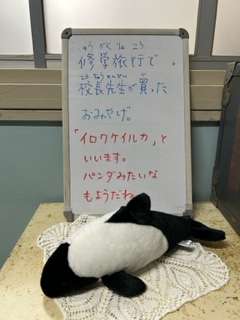 しゅうがくりょこう
修学旅行で、
こうちょうせんせい か
校長先生が買った
おみやげ。
「イロワケイルカ」と
いいます。
パンダみたいな
もようだね